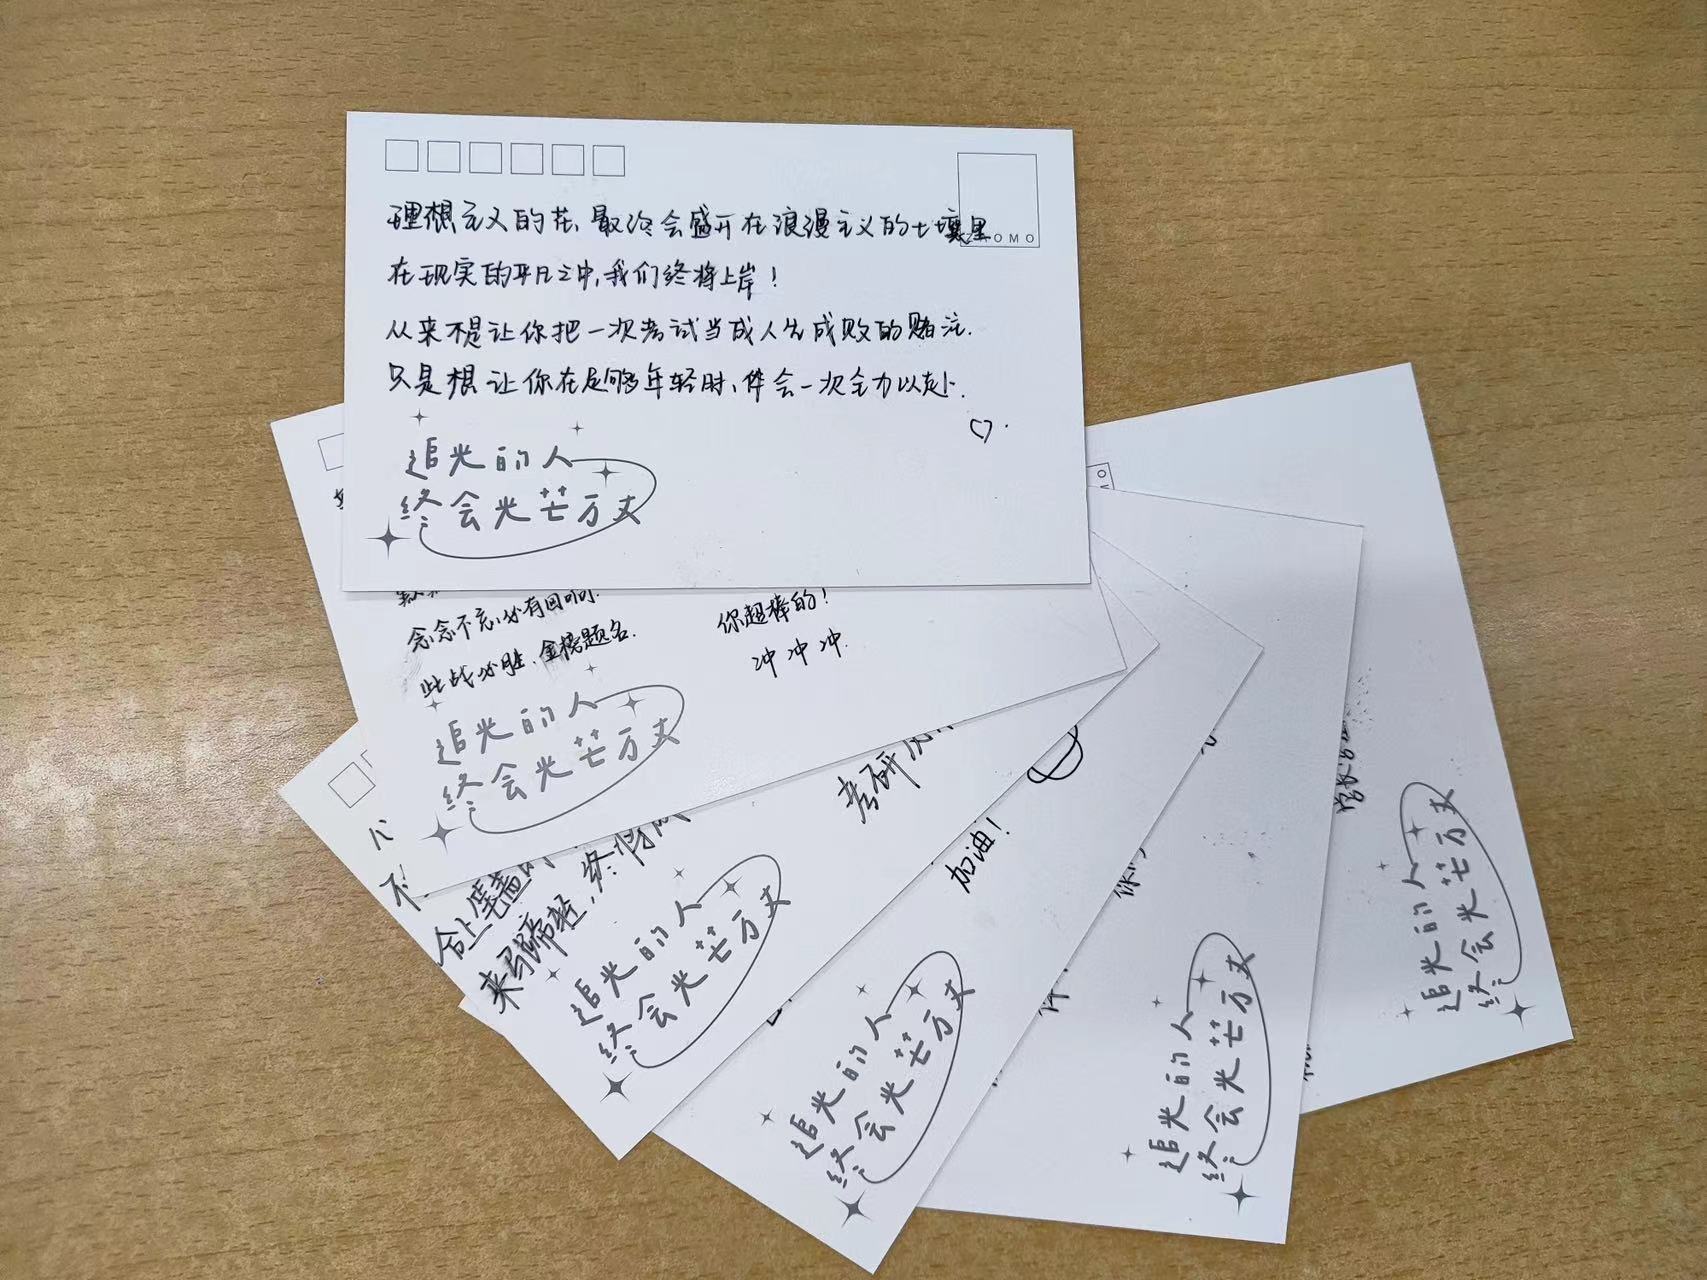 理想主义的花,最终会盛开在浪漫主义的土壤里
ZAOMO
在现实的平凡之中,我们终将上岸!
从来不是让你把一次考试当成人生成败的赌注.
只是想让你在足够年轻时、体会一次全力以赴.
♡.
追光的人
终会光芒万丈
念念不忘,必有回响.
此战必胜,金榜题名.
你超棒的!
冲冲冲.
追光的人
终会光芒万丈
心
不
合上笔盖
来马蹄轻,终得
考研
追光的人
终会光芒万丈
加油!
追光的人
终会光芒万丈
你
追光的人
终会光芒万丈
学长
追光的人
终会光芒万丈